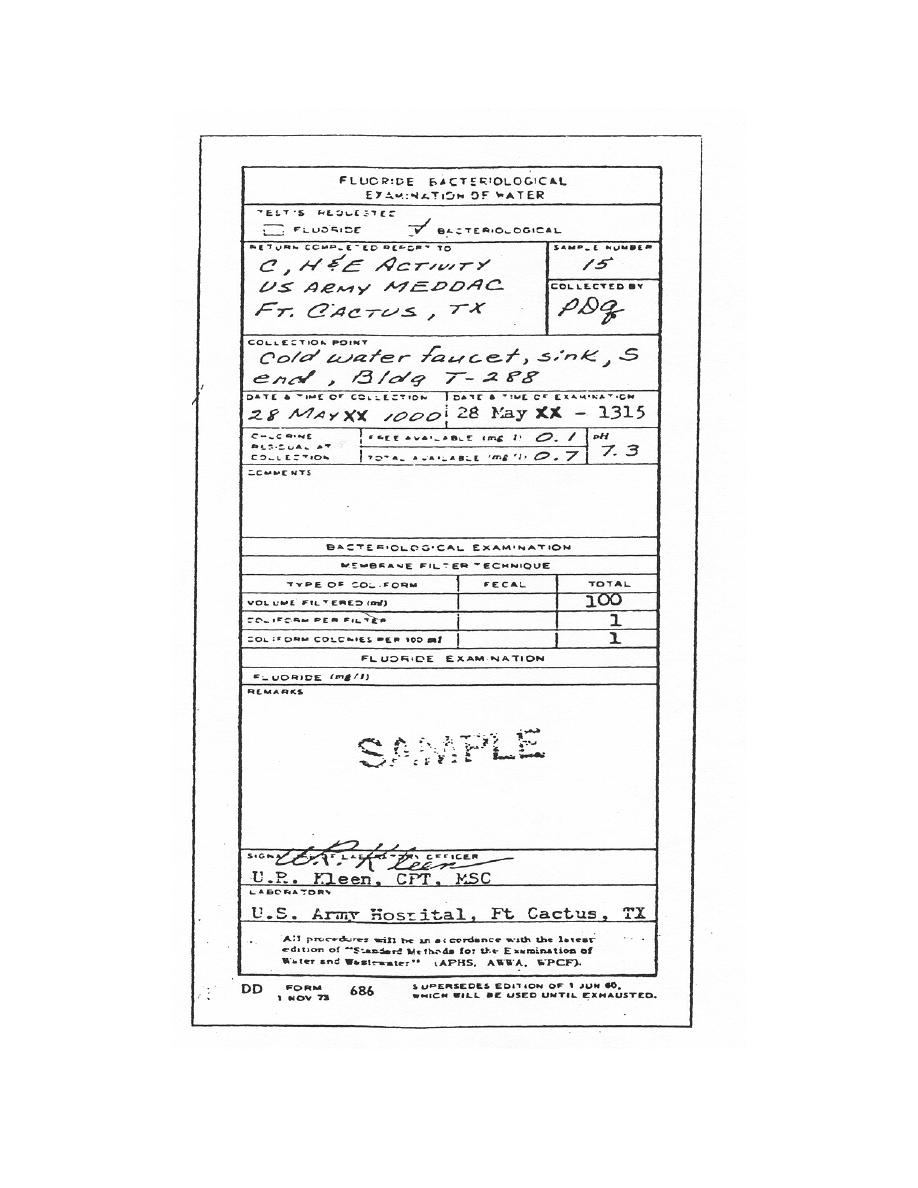 FLUORIDE BACTERIOLOGICAL
EXAMINATION OF WATER
TESTS REQUESTED
FLUORIDE BACTERIOLOGICAL
RETURN COMPLETED REPORT TO
C, H & E ACTIVITY
US ARMY MEDDAC
FT. CACTUS, TX
SAMPLE NUMBER
15
COLLECTED BY
PDQ
COLLECTION POINT
Cold water faucet, sink, S
end, Bldg T-288
DATE & TIME OF COLLECTION
28 MAY XX 1000
DATE & TIME OF EXAMINATION
28 May XX - 1315
CHLORINE
RESIDUAL AT
COLLECTION
FREE AVAILABLE (mg/l) 0.1
TOTAL AVAILABLE (mg/l) 0.7
pH
7.3
COMMENTS
BACTERIOLOGICAL EXAMINATION
MEMBRANE FILTER TECHNIQUE
TYPE OF COLIFORM FECAL TOTAL
VOLUME FILTERED (ml) 100
COLIFORM PER FILTER 1
COLIFORM COLONIES PER 100 ml 1
FLUORIDE EXAMINATION
FLUORIDE (mg/l)
REMARKS
SAMPLE
SIGNATURE OF LABORATORY OFFICER
U.P. Kleen
U.P. Kleen, CPT, MSC
LABORATORY
U.S. Army Hospital, Ft Cactus, TX
All procedures will be in accordance with the latest
edition of "Standard Methods for the Examination of
Water and Wastewater" (APHS, AWWA, WPCF).
DD FORM 686
1 NOV 73
SUPERSEDES EDITION OF 1 JUN 60,
WHICH WILL BE USED UNTIL EXHAUSTED.